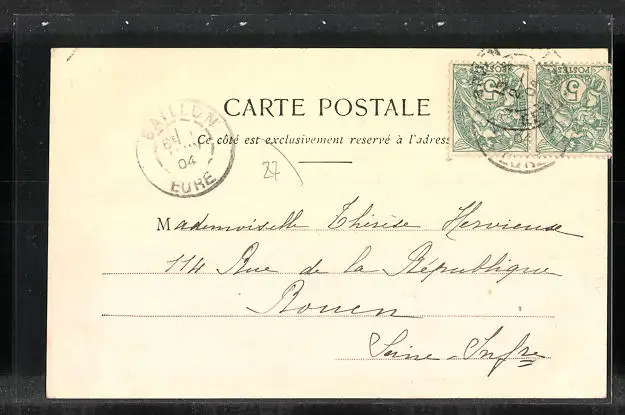 CARTE POSTALE
Ce côté est exclusivement reservé à l'adress
GAILLON
04
EURE
27
POSTES
5
5
EURE
Mademoiselle Thérèse Hervieuse
114 Rue de la République
Rouen
Seine-Infre